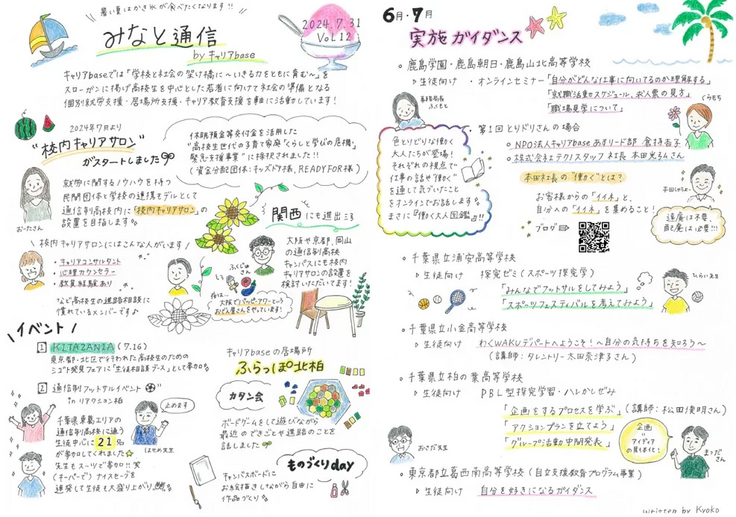 暑い夏はかき氷が食べたくなります!!
みなと通信
by キャリアbase
2024.7.31
VoL.12
キャリアbaseでは「学校と社会の架け橋に〜いきる力をともに育む〜」を
スローガンに掲げ高校生を中心とした若者に向けて社会の準備となる
個別就労支援・居場所支援・キャリア教育支援を軸に活動しています!
2024年7月より
"校内キャリアサロン"
がスタートしました
休眠預金等交付金を活用した
"高校生世代の子育て家庭「くらしと学びの居場
発見支援事業"に採択されました!!
(資金分配団体:キッズドア様、READYFOR様)
就労に関するノウハウを持つ
民間団体と学校の連携モデルとして
通信制高校内に「校内キャリアサロン」の
設置を目指します。
おーたさん
関西にも進出ミ3
大阪や京都、岡山
の通信制高校
キャンパスにも校内
キャリアサロンの設置を
検討いただいてます!
ふくじゅさん
大阪で
おどん屋さんをやっています!
\ 校内キャリアサロンにはこんな人がいます! /
・キャリアコンサルタント
・心理カウンセラー
・教員経験あり
など高校生の進路相談に
慣れているメンバーです♪
\ イベント /
1 KITAZANIA (7.16)
東京都・北区で行われた高校生のための
シゴト発見フェアに「生徒相談ブース」として参加。
2 通信制フットサルイベント
in リアクション柏
千葉県東葛エリアの
通信制高校に通う
生徒中心に 21名
が参加してくれました☆
先生もスーツで参加!!
(キーパーで)ナイスセーブを
連発して生徒も大盛り上がり
止めます
はせめ先生
キャリアbaseの居場所
ふらっぽ°北柏
カタン会
ボードゲームをして遊びながら
最近のできごとや進路のことを
話しました
ものづくりday
キャンバスボードに
お絵描きしながら自由に
作品づくり。
6月・7月
実施ガイダンス
○ 鹿島学園・鹿島朝日・鹿島山北高等学校
▷ 生徒向け ・オンラインセミナー「自分がどんな仕事に向いてるのか理解する」
「就職活動のスケジュール、求人票の見方」
「職場見学について」
事務局長
ふくもと
くらもち
色とりどりな働く
大人たちが登場!
それぞれの視点で
仕事の話や「働く」
を通して気づいたこと
をオンラインでお話します。
まさに「働く大人図鑑」!!
第1回 とりどりさんの場合
○ NPO法人キャリアbase あすリード部 倉持杏子
○ 株式会社エテクスタッフ 社長 本田光弘さん
本田社長の"働く"とは?
お客様からの「イイネ」と、
自分への「イイネ」を集めること!
ブログ
本田しゃちょー
遠慮は不要、
配慮は必要!!!
○ 千葉県立浦安高等学校
▷ 生徒向け 探究ゼミ(スポーツ探究学)
「みんなでフットサルをしてみよう」
「スポーツフェスティバルを考えてみよう」
ひらい先生
○ 千葉県立小金高等学校
▷ 生徒向け わくWAKUデパートへようこそ!〜自分の気持ちを知ろう〜
(講師:タレントリー 太田奈津子さん)
○ 千葉県立柏の葉高等学校
▷ 生徒向け PBL型探究学習・ハレかしぜみ
「企画をするプロセスを学ぶ」(講師:松田俊明さん)
「アクションプランを立てよう」
「グループ活動中間発表」
おさだ先生
企画
=
アイディア
の具体化!
まつださん
○ 東京都立葛西南高等学校(自立支援教育プログラム事業)
▷ 生徒向け 自分を好きになるガイダンス
written by Kyoko